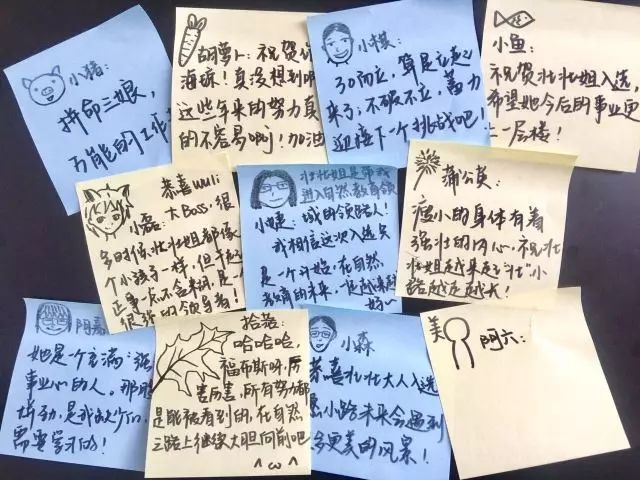 小猪:
拼命三娘,
万能的工作
胡萝卜: 祝贺你
海琼! 真没想到啊
这些年来的努力真
的不容易啊! 加油
小棋:
30而立, 算是立起
来了; 不破不立, 蓄力
迎接下一个挑战吧!
小鱼:
祝贺壮壮姐入选,
希望她今后的事业更
上一层楼!
恭喜wuli
大Boss, 很
小磊:
多时候, 壮壮姐都像
个小孩子一样, 但干起
正事一点不含糊, 是个
很强的领导者!
壮壮姐是带我
进入自然教育领
小婕: 域的领路人!
我相信这次入选只
是一个开始, 在自然
教育的未来, 一定越来越
好~
蒲公英:
瘦小的身体有着
强壮的内心, 祝壮
壮姐越来越"壮" 小
路越走越长!
阿嘉
她是个充满
事业心的人。那股
是我们
需要学习的!
拾蒎:
哈哈哈,
福布斯呀, 厉
害厉害, 所有努力都
是能被看到的, 在自然
之路上继续大胆向前吧
^ω^
小森
恭喜壮壮大人入选
小路未来会遇到
多更美的风景!
美
阿六: